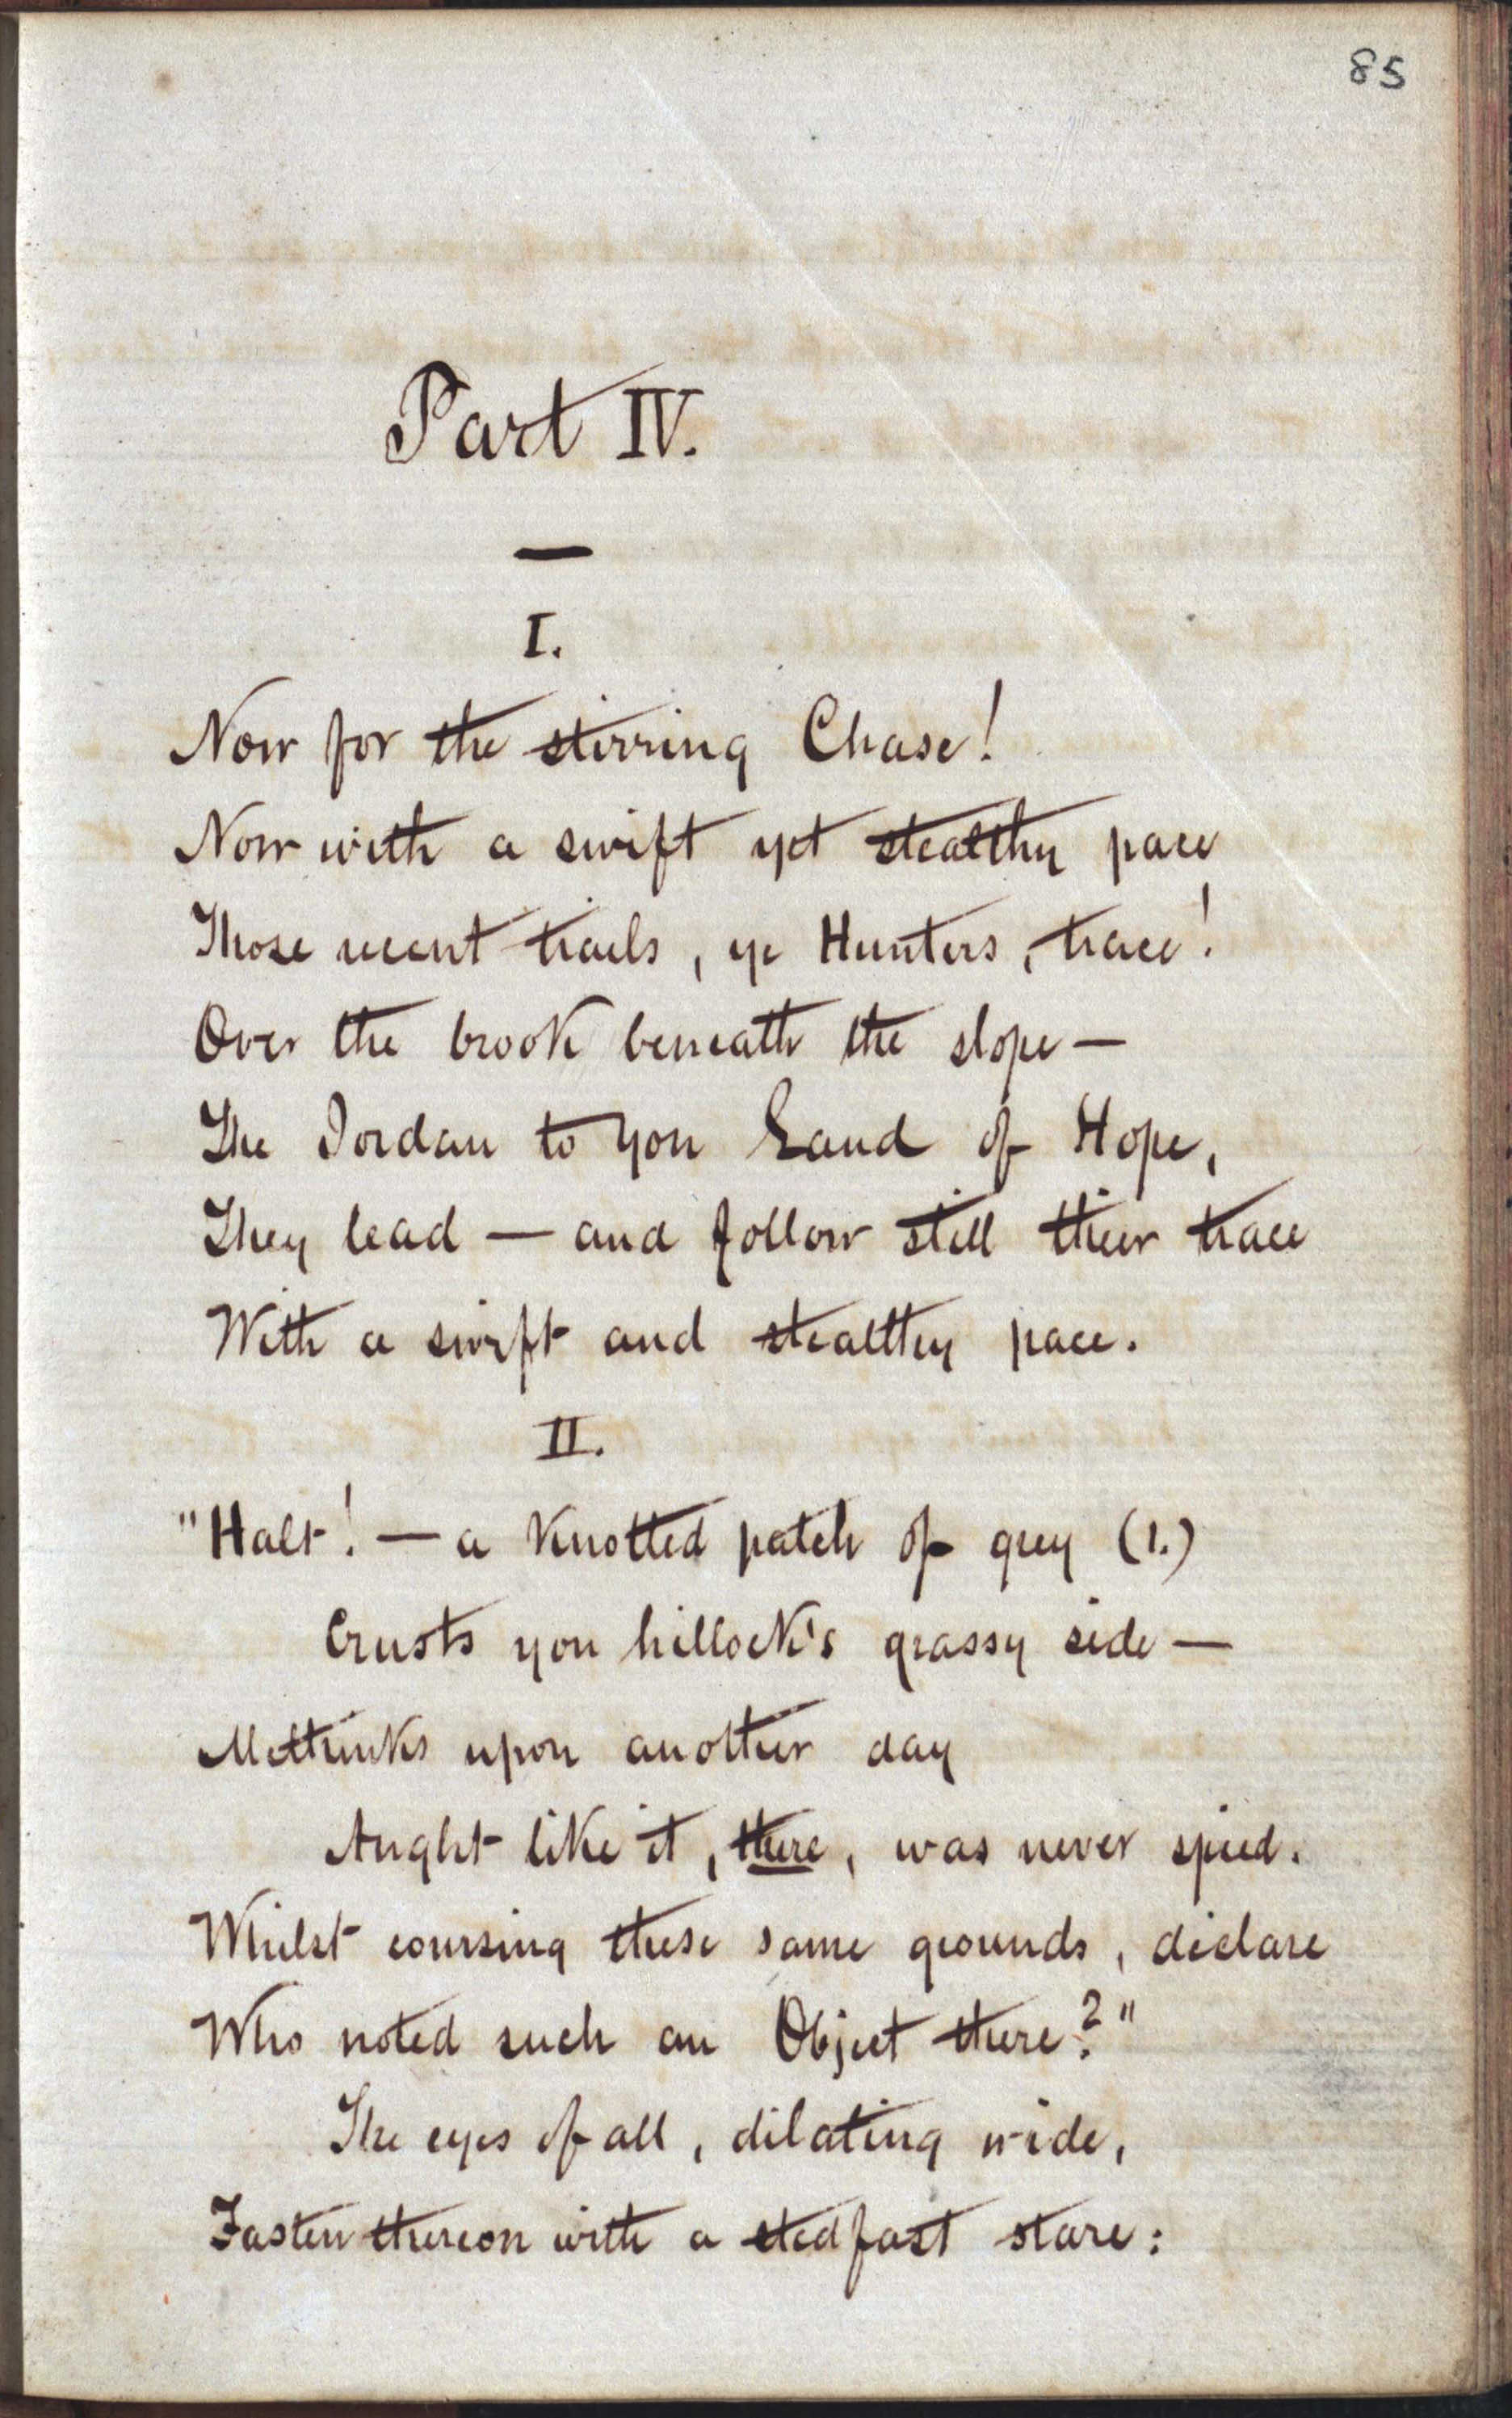 85
Part IV.
—
I.
Now for the stirring Chase!
Now with a swift yet stealthy pace
Those recent trails, ye Hunters, trace!
Over the brook beneath the slope —
The Jordan to yon Land of Hope,
They lead — and follow still their trace
With a swift and stealthy pace.
II.
"Halt! — a Knotted patch of grey (1.)
Crusts yon hillock's grassy side —
Methinks upon another day
Aught like it, there, was never spied.
Whilst coursing these same grounds, declare
Who noted such an Object there?"
The eyes of all, dilating wide,
Fasten thereon with a stedfast stare: